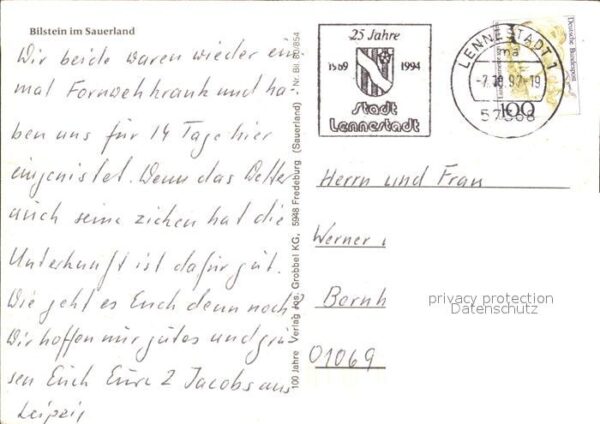 Bilstein im Sauerland
Wir beide waren wieder ein
mal Fornwehkrank und ha-
ben uns für 14 Tage hier
eingenistet. Wenn das Wetter
auch seine zicken hat die
Unterkunft ist dafür gut.
Wie geht es Euch denn noch
Wir hoffen nur gutes und grü
sen Euch Eure 2 Jacobs aus
Leipzig
100 Jahre Verlag Jos. Grobbel KG, 5948 Fredeburg (Sauerland)
25 Jahre
1969 1994
Stadt
Lennestadt
LENNESTADT 1
ma
-19
57368
100
Deutsche Bundespost
Herrn und Frau
Werner
Bernh
01069
privacy protection
Datenschutz